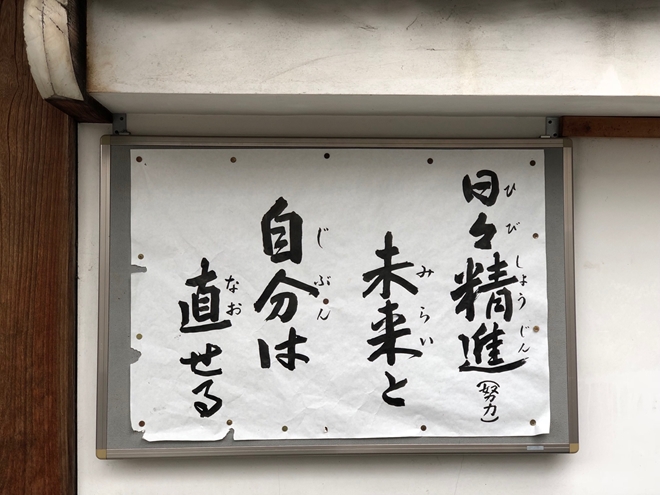 日々精進(努力)
ひびしょうじん
未来と
みらい
自分は
じぶん
直せる
なお